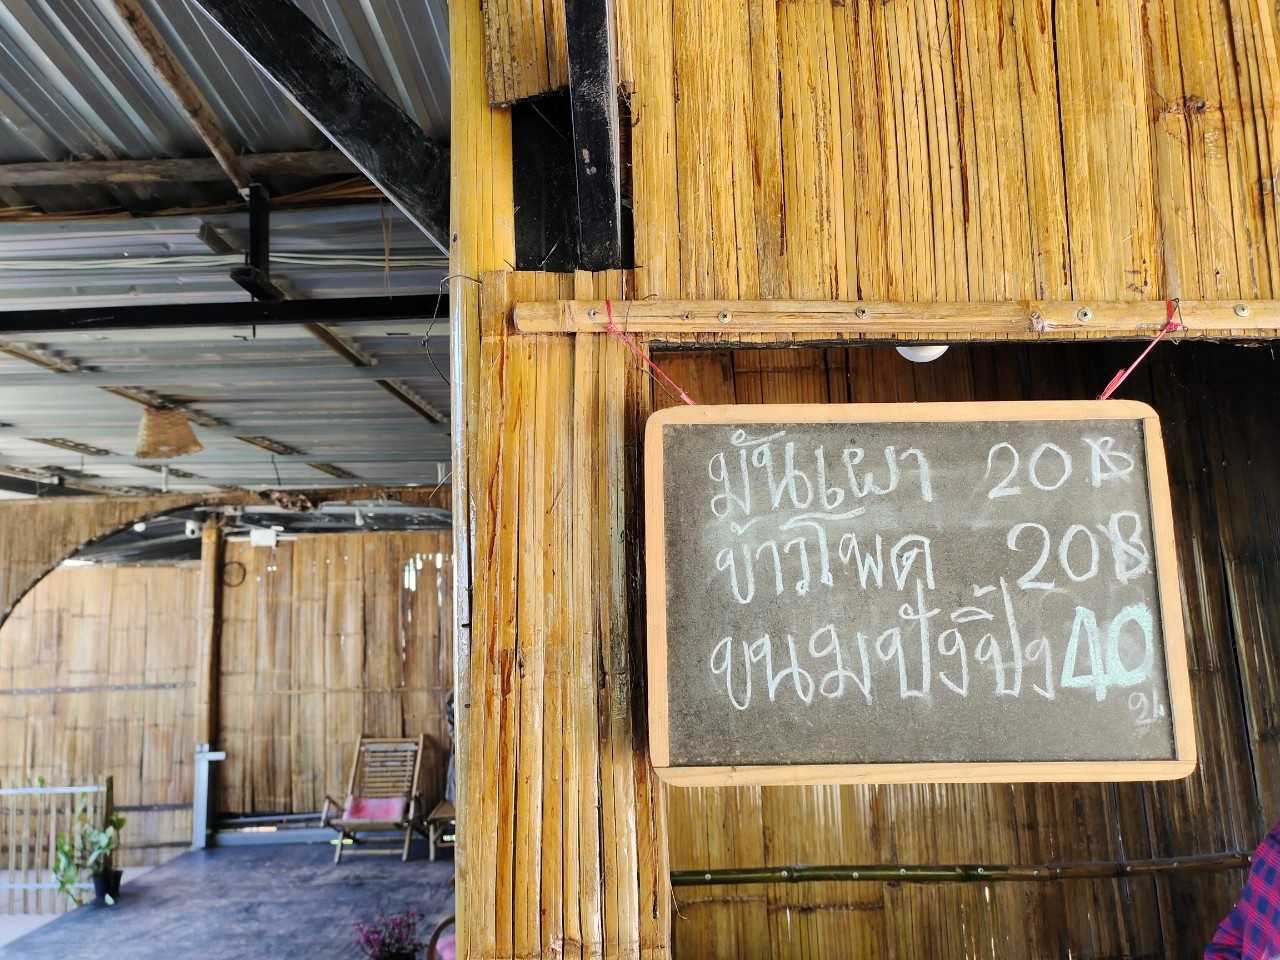 มันเผา 20 B
ข้าวโพด 20 B
ขนมปังปิ้ง 40